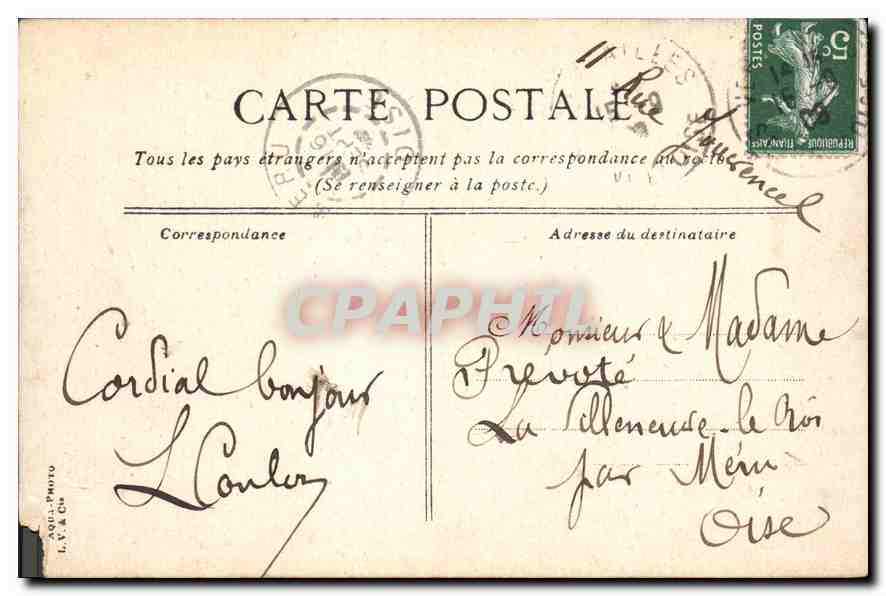 11 Rue
CARTE POSTALE
Tous les pays étrangers n'acceptent pas la correspondance au recto
(Se renseigner à la poste.)
Correspondance
Adresse du destinataire
5c
POSTES
REPUBLIQUE FRANÇAISE
CPAPHIL
Cordial bonjour
Monsieur & Madame
Prevoté
La Villeneuve-le Roi
par Méru
Oise
AQUA-PHOTO
L. V. & Cie